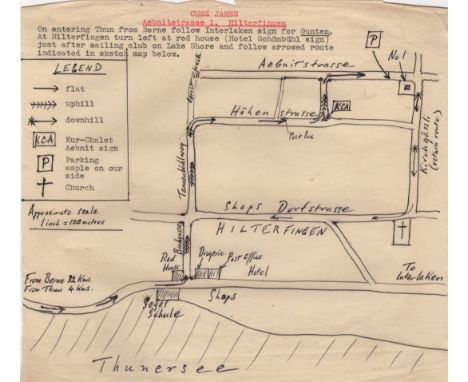 CHEZ JAMES
Aebnitstrasse 1, Hilterfingen
On entering Thun from Berne follow Interlaken sign for Gunten.
At Hilterfingen turn left at red house (Hotel Schönbühl sign)
just after sailing club on Lake Shore and follow arrowed route
indicated in sketch map below.
LEGEND
flat
uphill
downhill
KCA Kur-Chalet
Aebnit sign
P Parking
ample on our
side
Church
Approximate scale
1 inch = 100 metres
P
No 1
Aebnitstrasse
KCA
Höhen strasse
Post Box
Tannenbühlweg
Kirchgässli
(return route)
Shops Dorfstrasse
HILTERFINGEN
Red
House
Drogerie
Post Office
Hotel
To
Interlaken
From Berne 32 Kms.
From Thun 4 Kms.
Segel
Schule
Shops
Thunersee